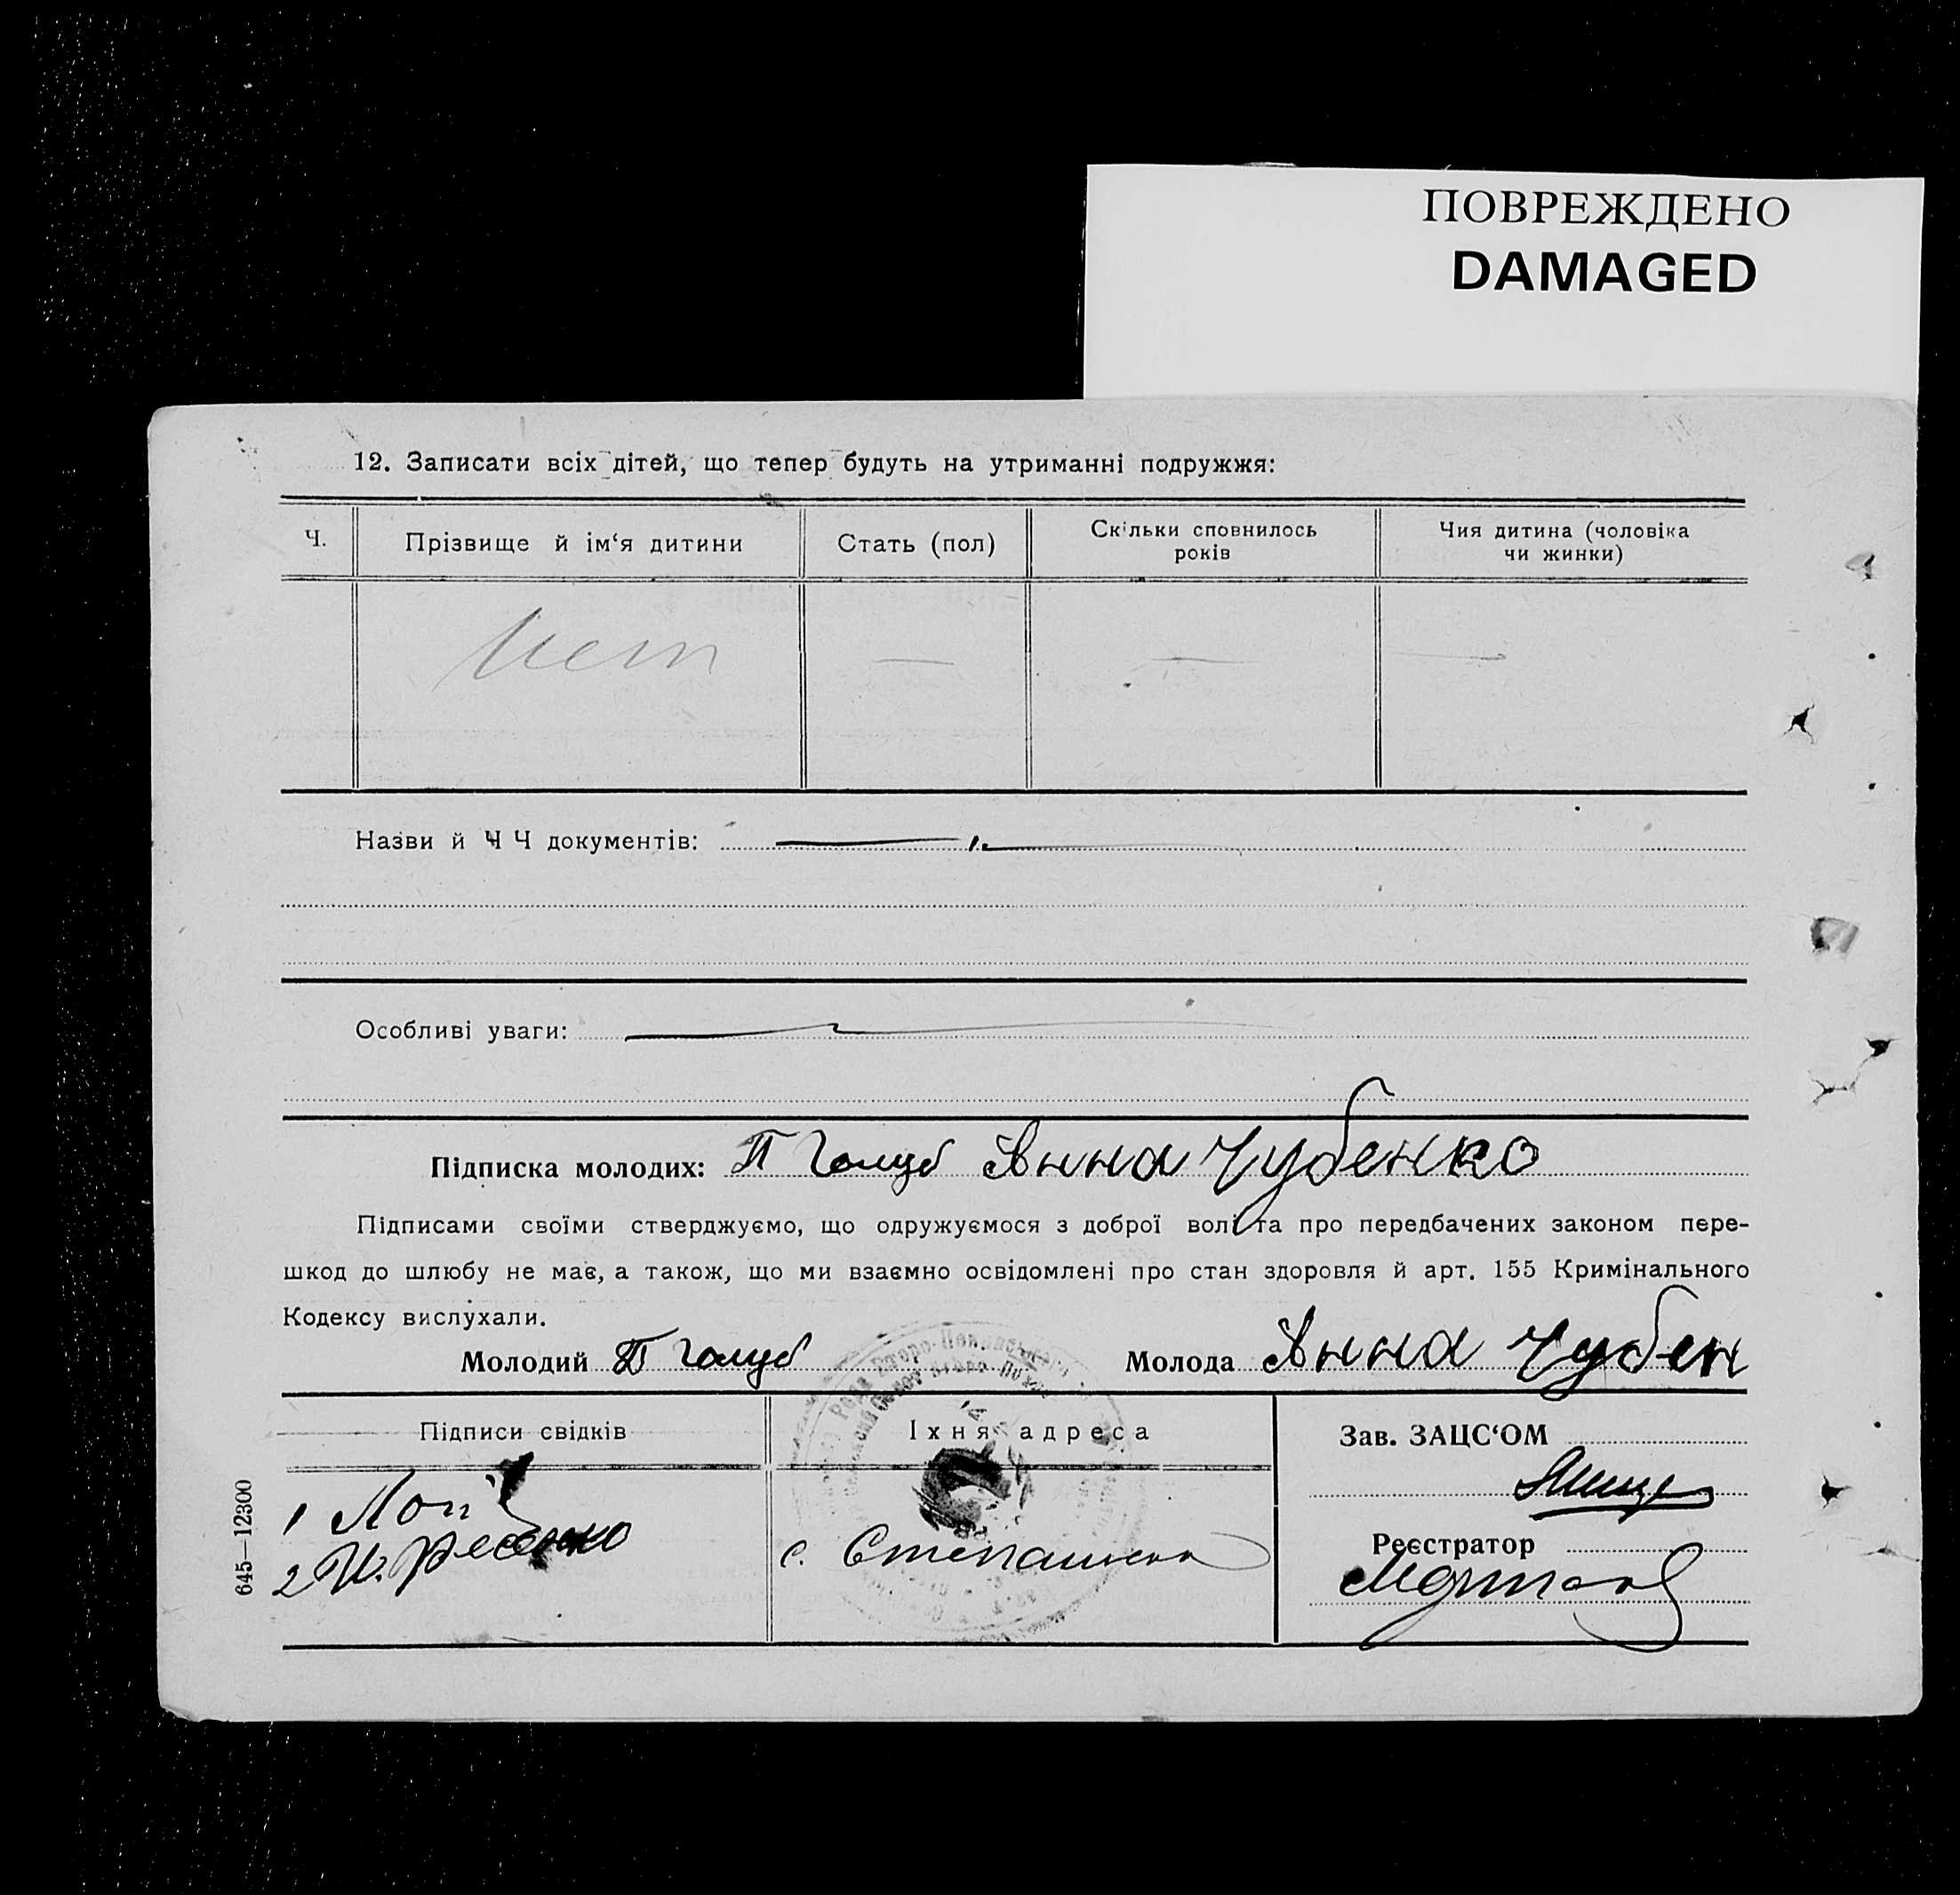 ПОВРЕЖДЕНО
DAMAGED
12. Записати всіх дітей, що тепер будуть на утриманні подружжя:
Ч. Прізвище й ім‘я дитини Стать (пол) Скільки сповнилось років Чия дитина (чоловіка чи жинки)
Нет — — —
Назви й Ч Ч документів:
Особливі уваги:
Підписка молодих: П Голуб Анна Чубенко
Підписами своїми стверджуємо, що одружуємося з доброї волі та про передбачених законом пере-
шкод до шлюбу не має, а також, що ми взаємно освідомлені про стан здоровля й арт. 155 Кримінального
Кодексу вислухали.
Молодий П Голуб Молода Анна Чубен
Підписи свідків Їхня адреса Зав. ЗАЦС‘ОМ
1
2
с.
Реєстратор
645—12300